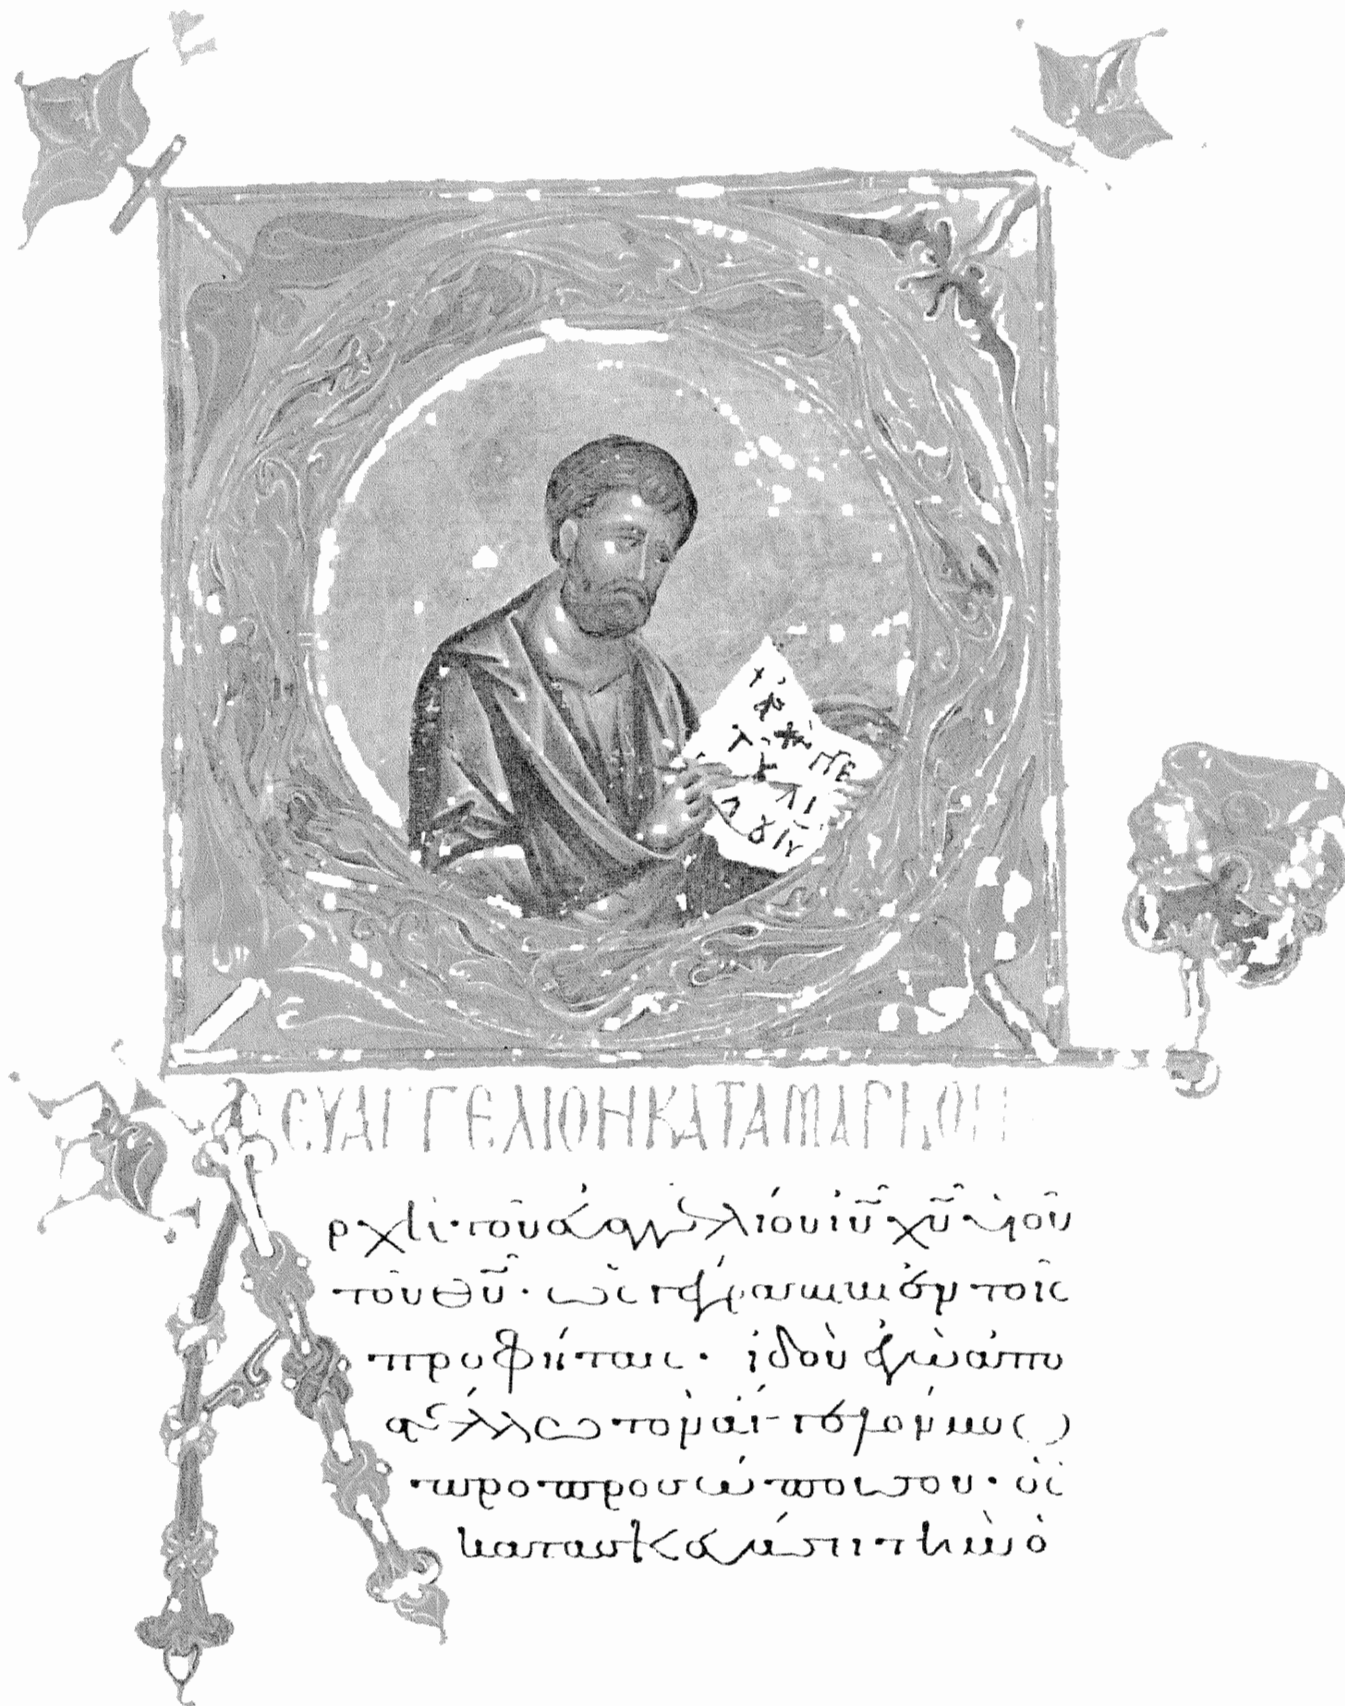 ΕΥΑΓΓΕΛΙΟΝ ΚΑΤΑ ΜΑΡΚΟΝ
ρχὴ τοῦ εὐαγγελίου ιῦ χῦ υἱοῦ
τοῦ θῦ· ὡς γέγραπται ἐν τοῖς
προφήταις· ἰδοὺ ἐγὼ ἀπο
στέλλω τὸν
πρὸ προσώπου σου· ὃς
κατασκευάσει τὴν ὁ